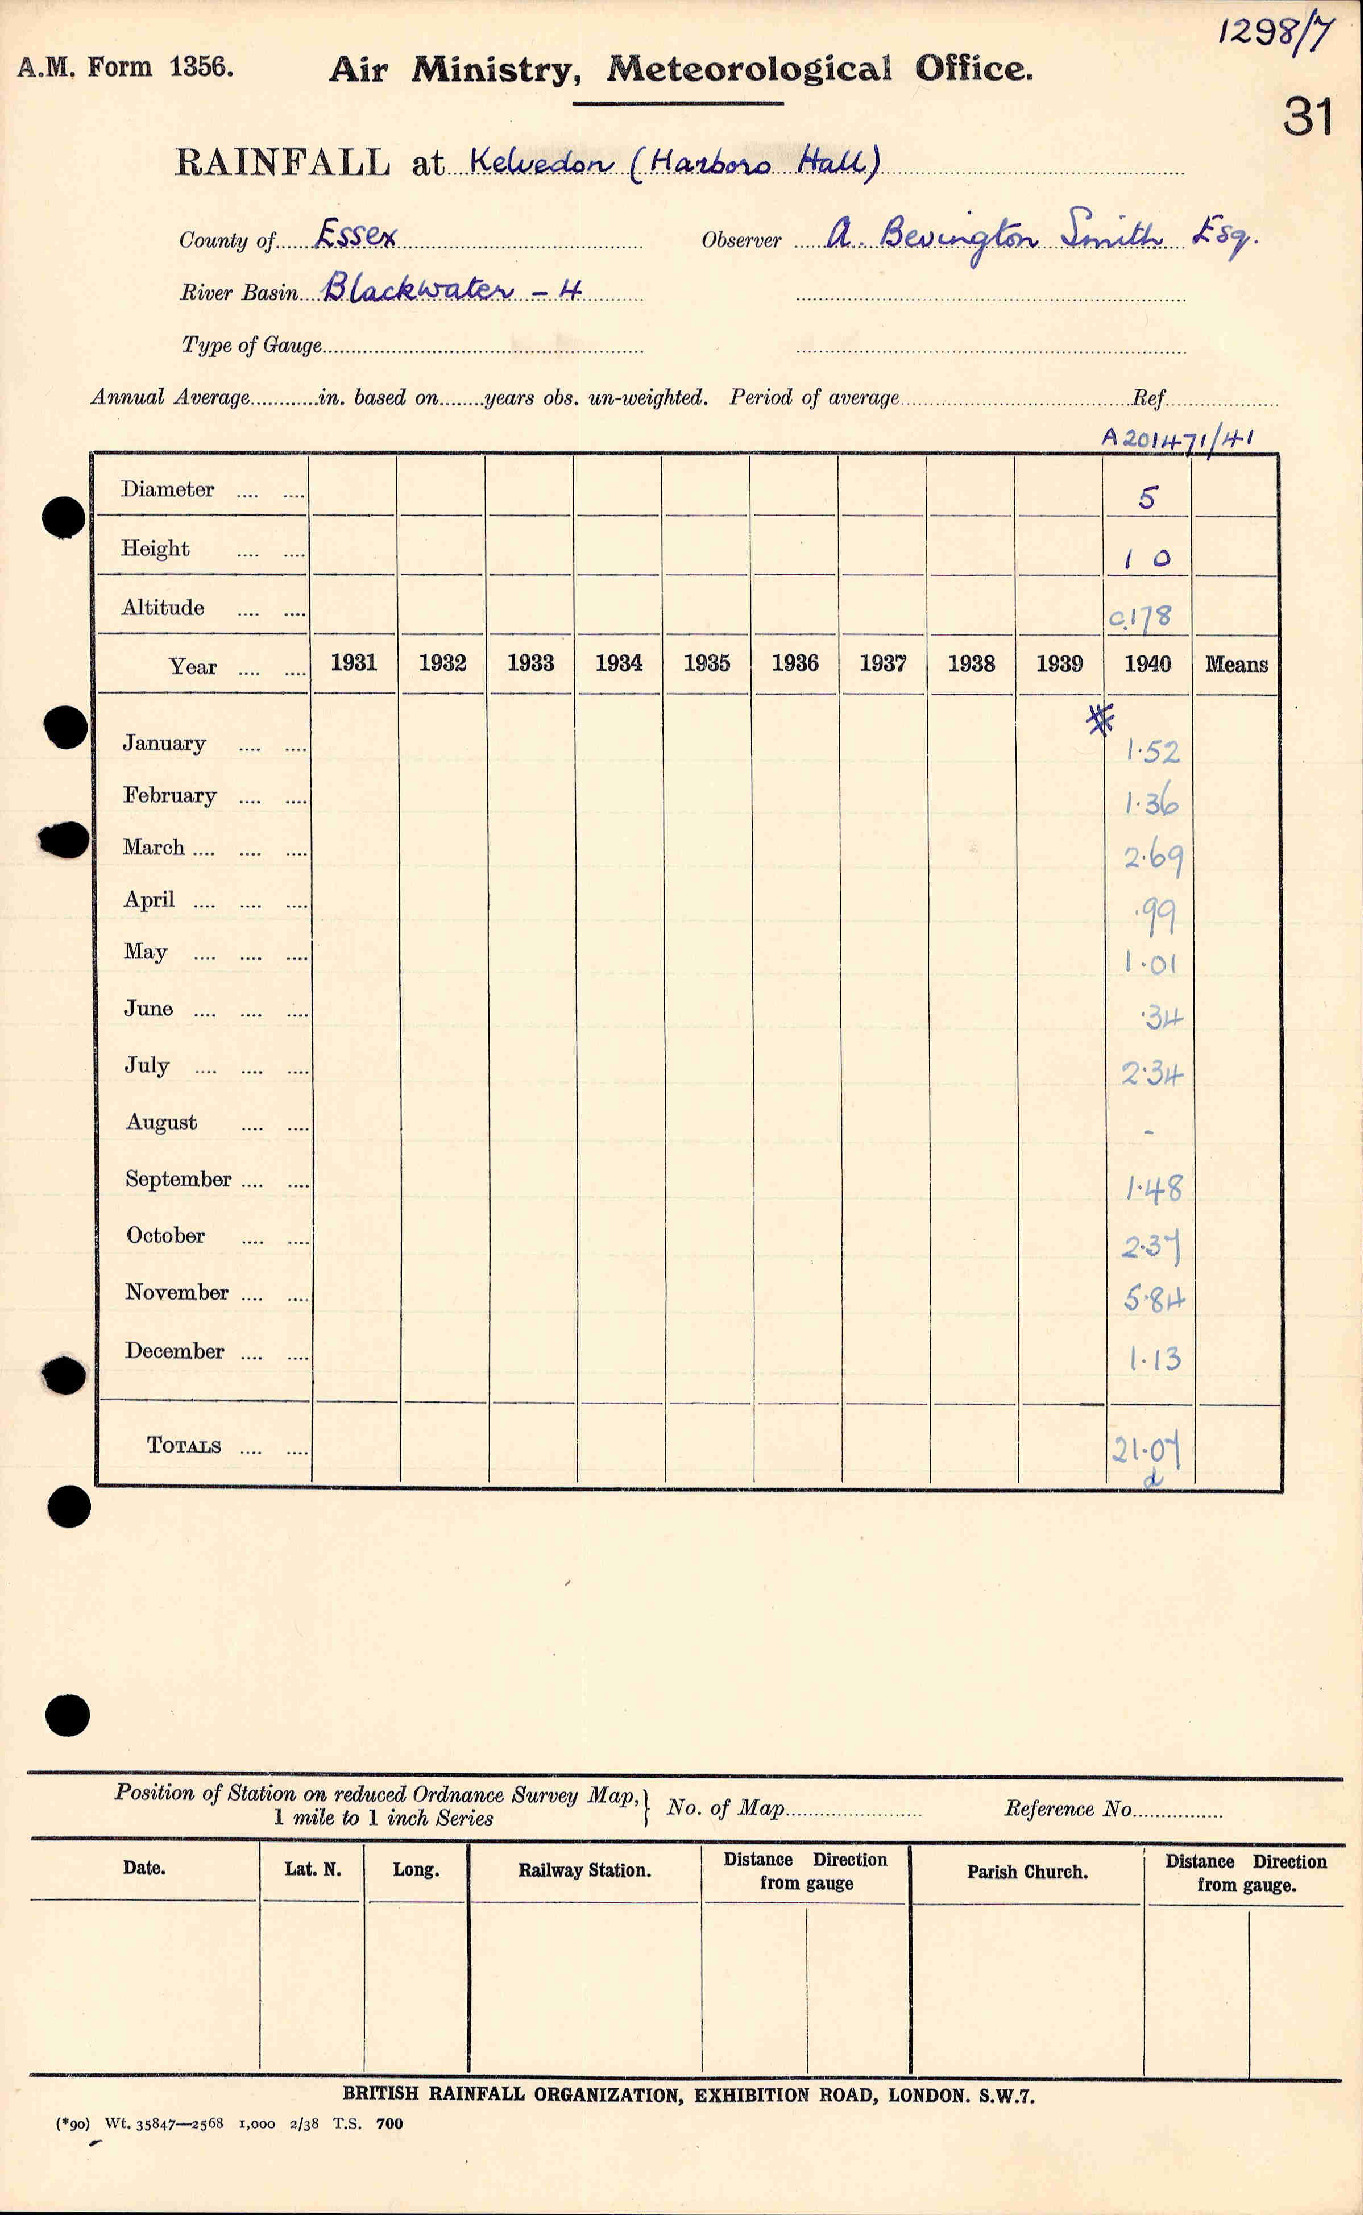 1298/7
A.M. Form 1356. Air Ministry, Meteorological Office.
31
RAINFALL at Kelvedon (Harboro Hall)
County of Essex Observer A. Bevington Smith Esq.
River Basin Blackwater - 4
Type of Gauge
Annual Average in. based on years obs. un-weighted. Period of average Ref
A201471/41
Diameter 5
Height 1 0
Altitude c.178
Year 1931 1932 1933 1934 1935 1936 1937 1938 1939 1940 Means
January 1.52
February 1.36
March 2.69
April .99
May 1.01
June .34
July 2.34
August -
September 1.48
October 2.37
November 5.84
December 1.13
TOTALS 21.07
d
Position of Station on reduced Ordnance Survey Map, } No. of Map Reference No.
1 mile to 1 inch Series
Date. Lat. N. Long. Railway Station. Distance Direction from gauge Parish Church. Distance Direction from gauge.
BRITISH RAINFALL ORGANIZATION, EXHIBITION ROAD, LONDON. S.W.7.
(*90) Wt. 35847—2568 1,000 2/38 T.S. 700